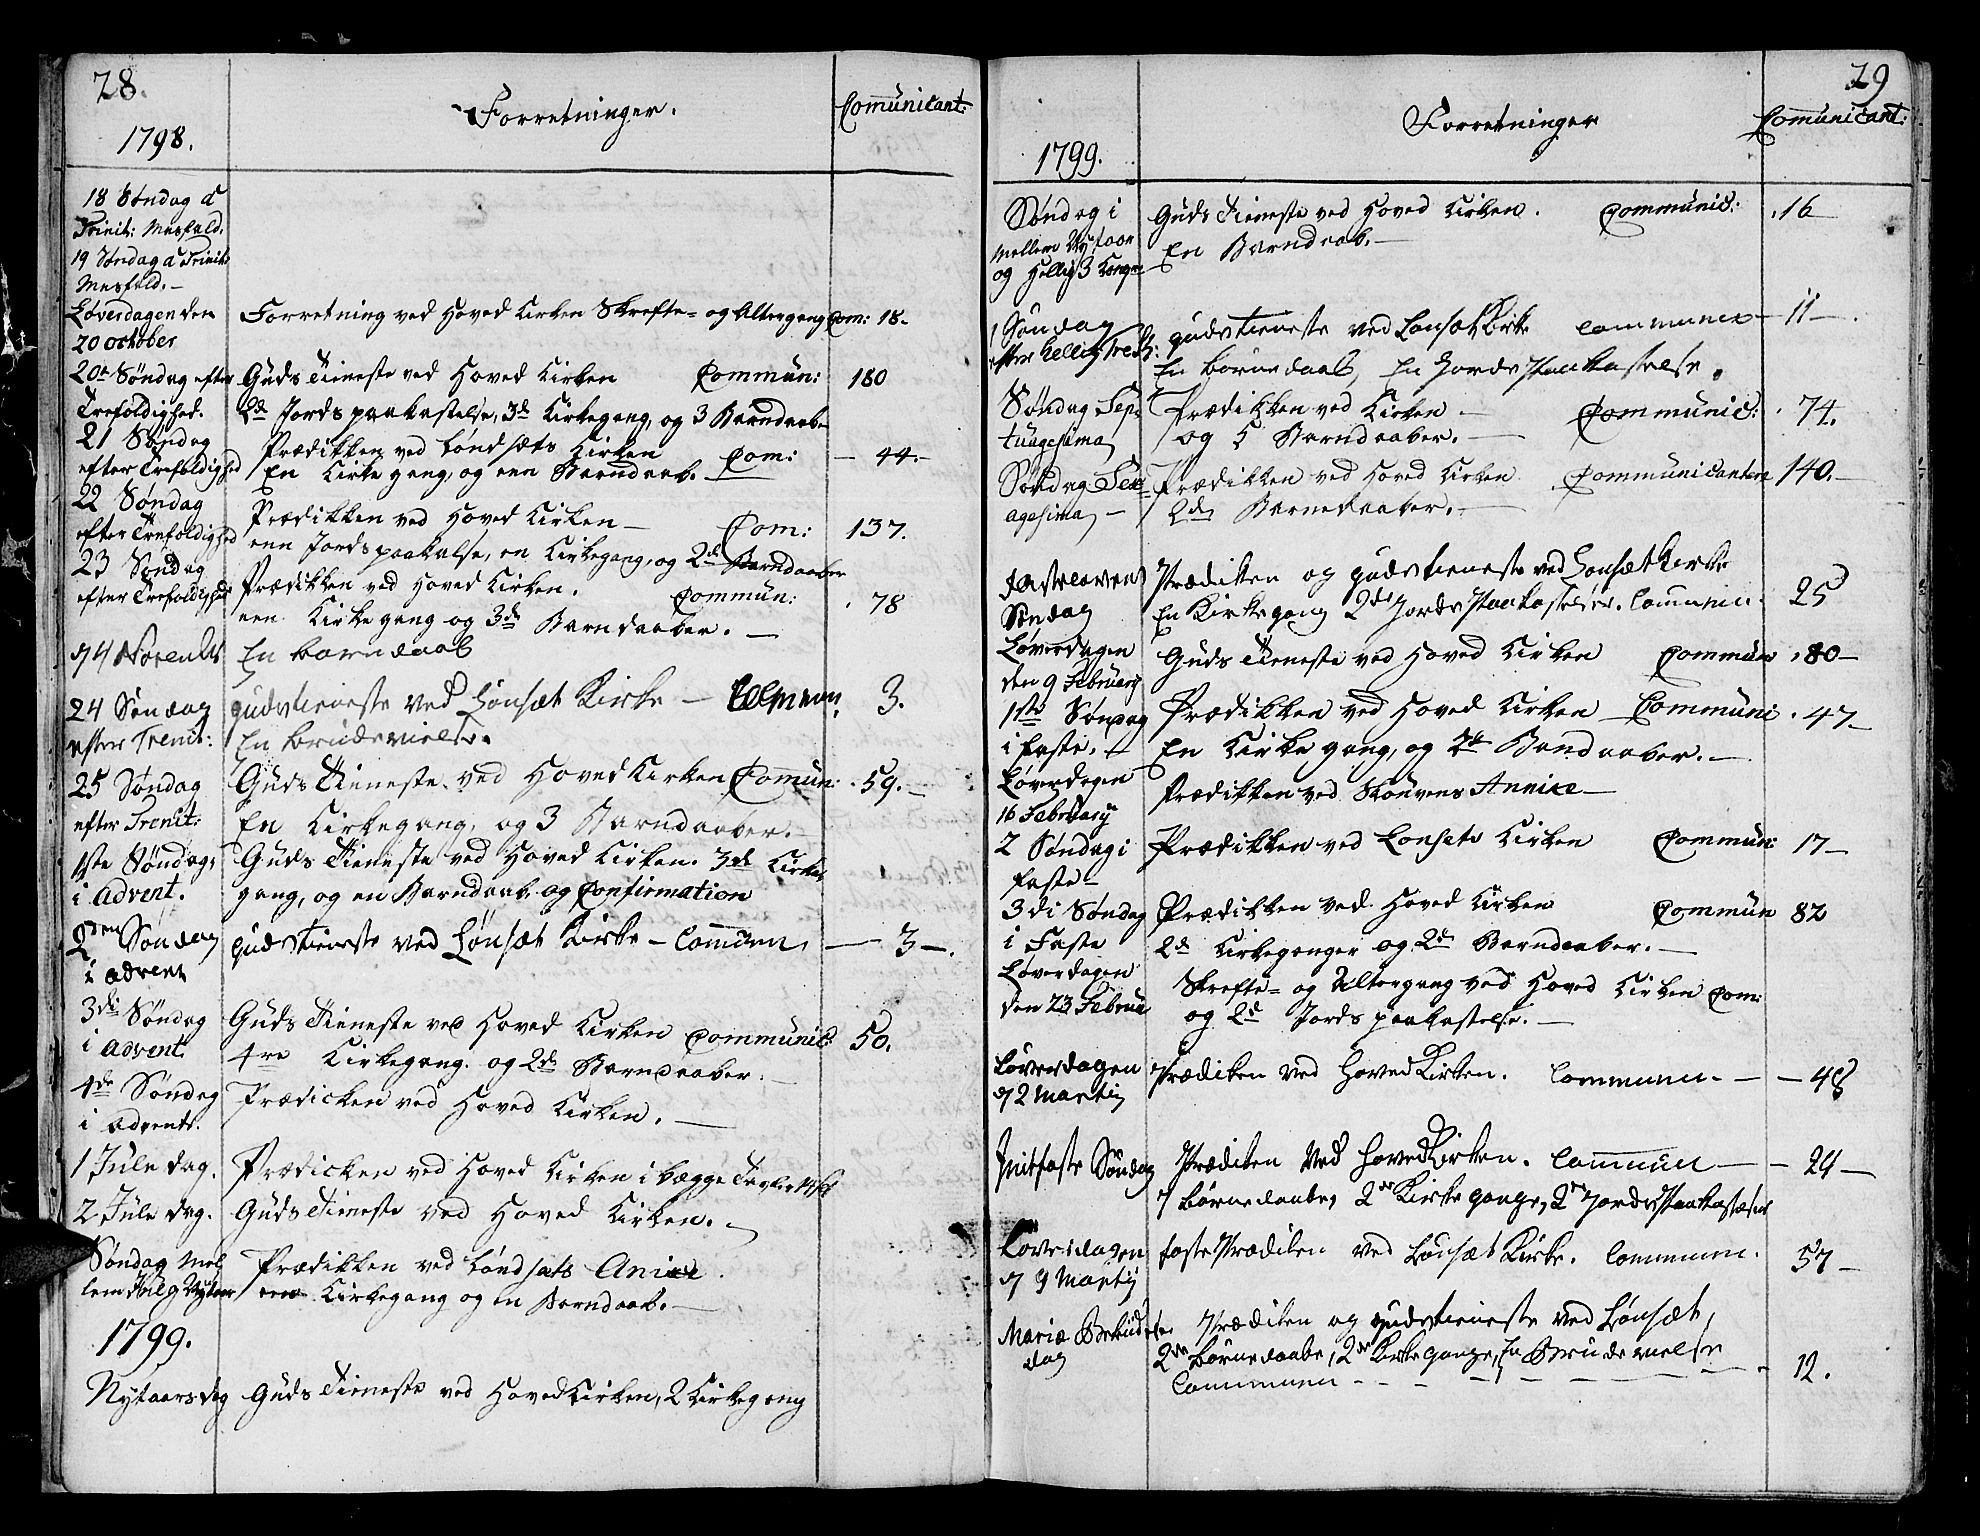 28.
1798.
Forretninger.
Com̄unicant:
18 Søndag a
Trinit: Mesfald.
19 Søndag a Trinit:
Mesfald. –
Løverdagen den
20 october
Forretning ved Hoved Kirken Skrifte- og Altergang Com: 18.
20de Søndag efter
Trefoldighed.
Guds Tieneste ved Hoved Kirken Commun: 180
2de Jords paakastelse, 3de Kirkegang, og 3 Barndaabe
21 Søndag
efter Trefoldighed
Prædikken ved Lønsæts Kirken Com: – 44. –
En Kirke gang, og enn Barndaab.
22 Søndag
efter Trefoldighed
Prædikken ved Hoved Kirken – Com: 137.
enn Jords paakalse, en Kirkegang, og 2de Barndaaber
23 Søndag
efter Trefoldighed
Prædikken ved Hoved Kirken. Commun: . 78
een Kirke gang og 3de Barndaaber. –
En barndaab
24 Søndag
efter Trenit:
gudstieneste ved Lønsæt Kirke – 3.
En brudevielse.
25 Søndag
efter Trenit:
Guds Tieneste ved Hoved Kirken Comun: . 59. –
En Kirkegang, og 3 Barndaaber. –
1ste Søndag
i Advent.
Guds Tieneste ved Hoved Kirken. 3de Kirke
gang, og en Barndaab og Confirmation
2den Søndag
i advent
gudstieneste ved Lønsæt Kirke – Com̄un. — 3 –.
3di Søndag
i Advent
Guds Tieneste ved Hoved Kirken Communic: 50.
4re Kirkegang. og 2de Barndaaber. –
4de Søndag
i Advents.
Prædicken ved Hoved Kirken. —
1 Jule dag.
Prædicken ved Hoved Kirken i begge
2 Jule dag.
Guds Tieneste ved Hoved Kirken. –
Søndag mel
lem Jul og Nytaar
Prædikken ved Lønsæts Anixe.
een Kirkegang og en Barndaab. –
1799.
Nytaarsdag
Guds Tieneste ved Hoved Kirken, 2 Kirkegang
29
1799.
Forretninger
Com̄unicant:
Søndag i
mellem Nytaar
og Hellig 3 Konge
Guds Tieneste ved Hoved Kirken. Communic: . 16
En Barndaab. –
1 Søndag
efter hellig Tre K:
gudstieneste ved Lonsæt Kirke communic – 11 –.
En børnedaab, En Jords Paakastelse.
Søndag Sep
tuagesima
Prædikken ved Kirken – Communic: . 74.
og 5 Barndaaber. –
Søndag Sex
agesima –
Prædikken ved Hoved Kirken Communicanten 140. –
2de Barnedaaber. –
Fastelavens
Søndag
Prædiken og gudstieneste ved Lonsæt Kirke
En Kirkegang 2de Jords Paakastelser. Communic. 25
Løverdagen
den 9 Februarij
Guds Tieneste ved Hoved Kirken Commun . 80 –
1ste Søndag
i faste. –
Prædikken ved Hoved Kirken – Communi . 47 –
En Kirke gang, og 2de Bandaaber. –
Løverdagen
16 Februarij
Prædikken ved Skouvens Annixe –
2 Søndag i
faste –
Prædikken ved Lonsets Kirken Commun: 17 –
3di Søndag
i Faste
Prædikken ved Hoved Kirken Commun 82
2de Kirkeganger og 2de Barndaaber. –
Løverdagen
den 23 Februa
Skrifte- og Altergang ved Hoved Kirken Com:
og 2de Jords paakastelse. –
Løverdagen
d 2 Martij
Prædiken ved Hoved Kirken. Communic. – – 48
Mitfaste Søndag
Prædiken ved Hoved Kirken. Com̄un — – 24 –
7 børnedaabe, 2de Kirke gange, 2de Jords Paakastelser
Løverdagen
d 9 Martij
faste Prædiken ved Lønsæt Kirke. Commun. 57 –
Mariæ Bebudelse
dag
Prædiken og gudstieneste ved Lønsæt,
2de børnedaabe, 2de Kirke gange, En Brudevielse
Commun – – – – – – – 12.